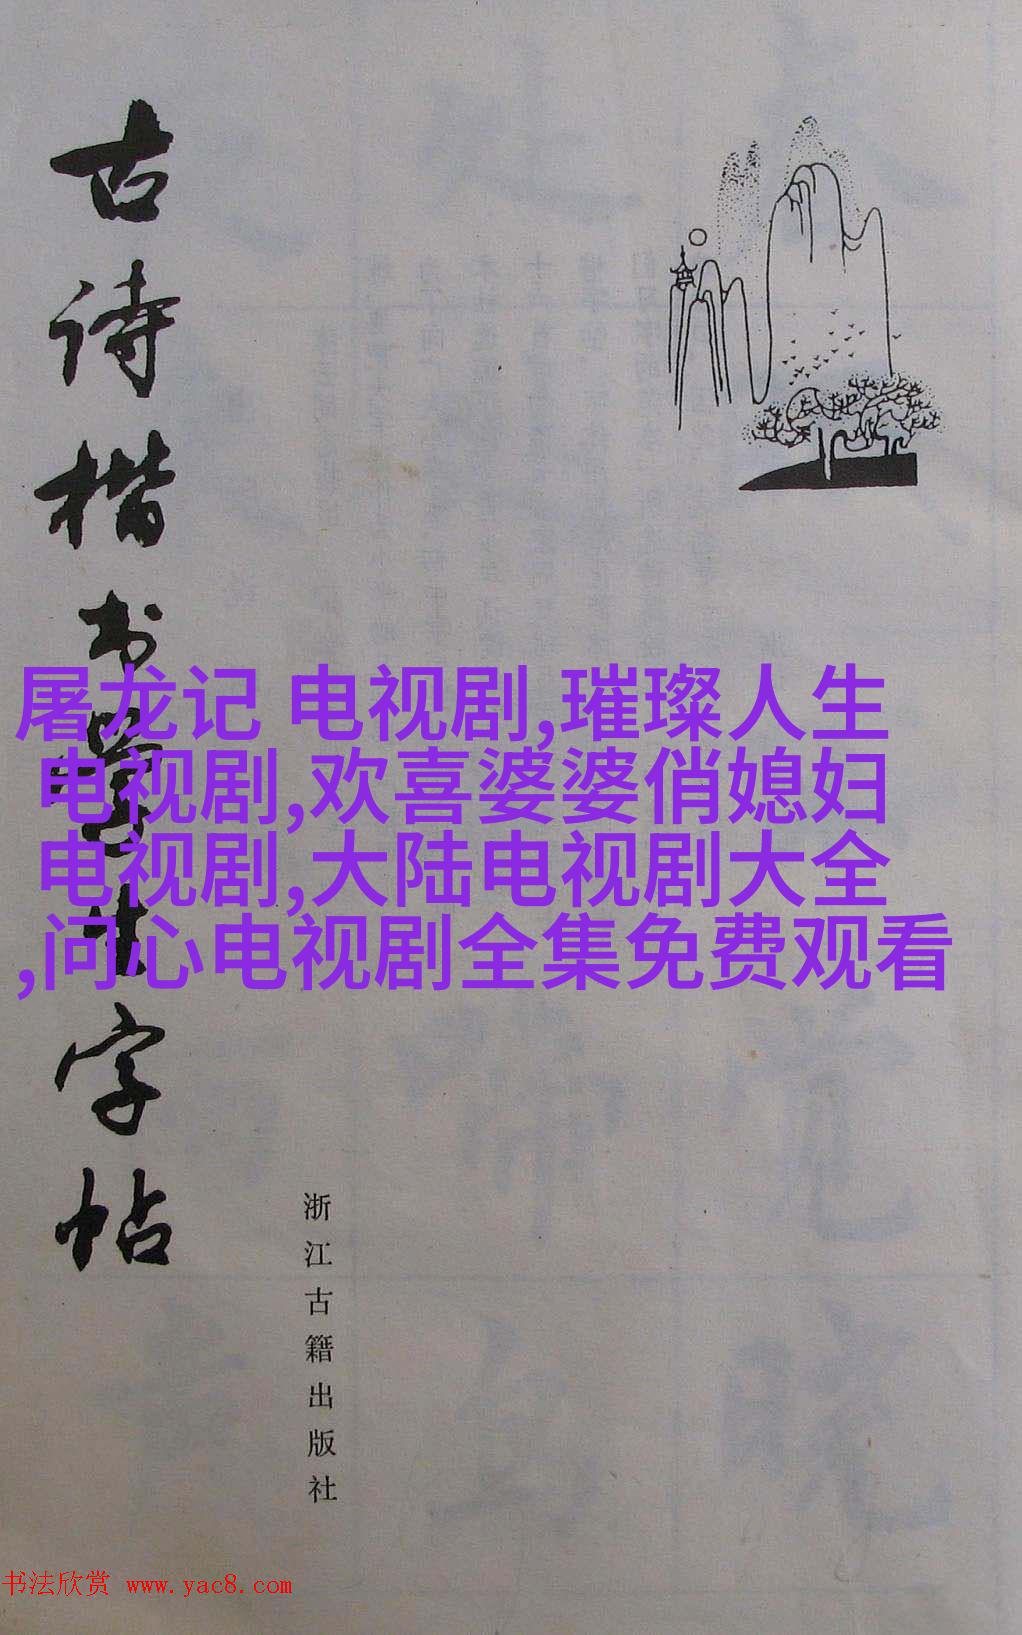 古诗楷书学生字帖
屠龙记 电视剧,璀璨人生
电视剧,欢喜婆婆俏媳妇
电视剧,大陆电视剧大全
,问心电视剧全集免费观看
浙江古籍出版社
书法欣赏 www.yac8.com